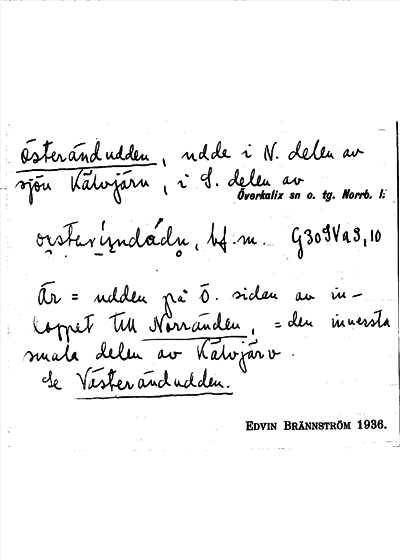 Österändudden, udde i N. delen av
sjön Kälvjärv, i S. delen av
Överkalix sn o. tg. Norrb. l:
bf. m.
Är = udden på Ö. sidan av in-
loppet till Norränden, = den innersta
smala delen av Kälvjärv.
Se Västerändudden.
EDVIN BRÄNNSTRÖM 1936.